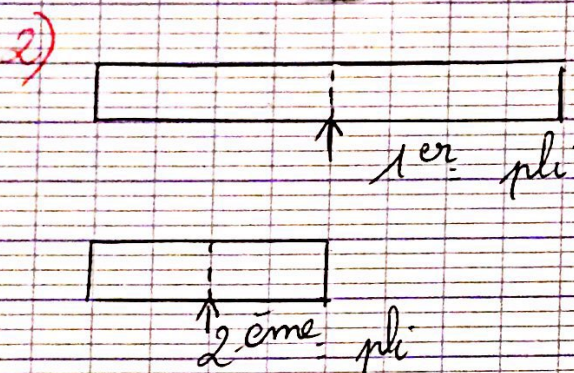 2)
1er pli
2ème pli